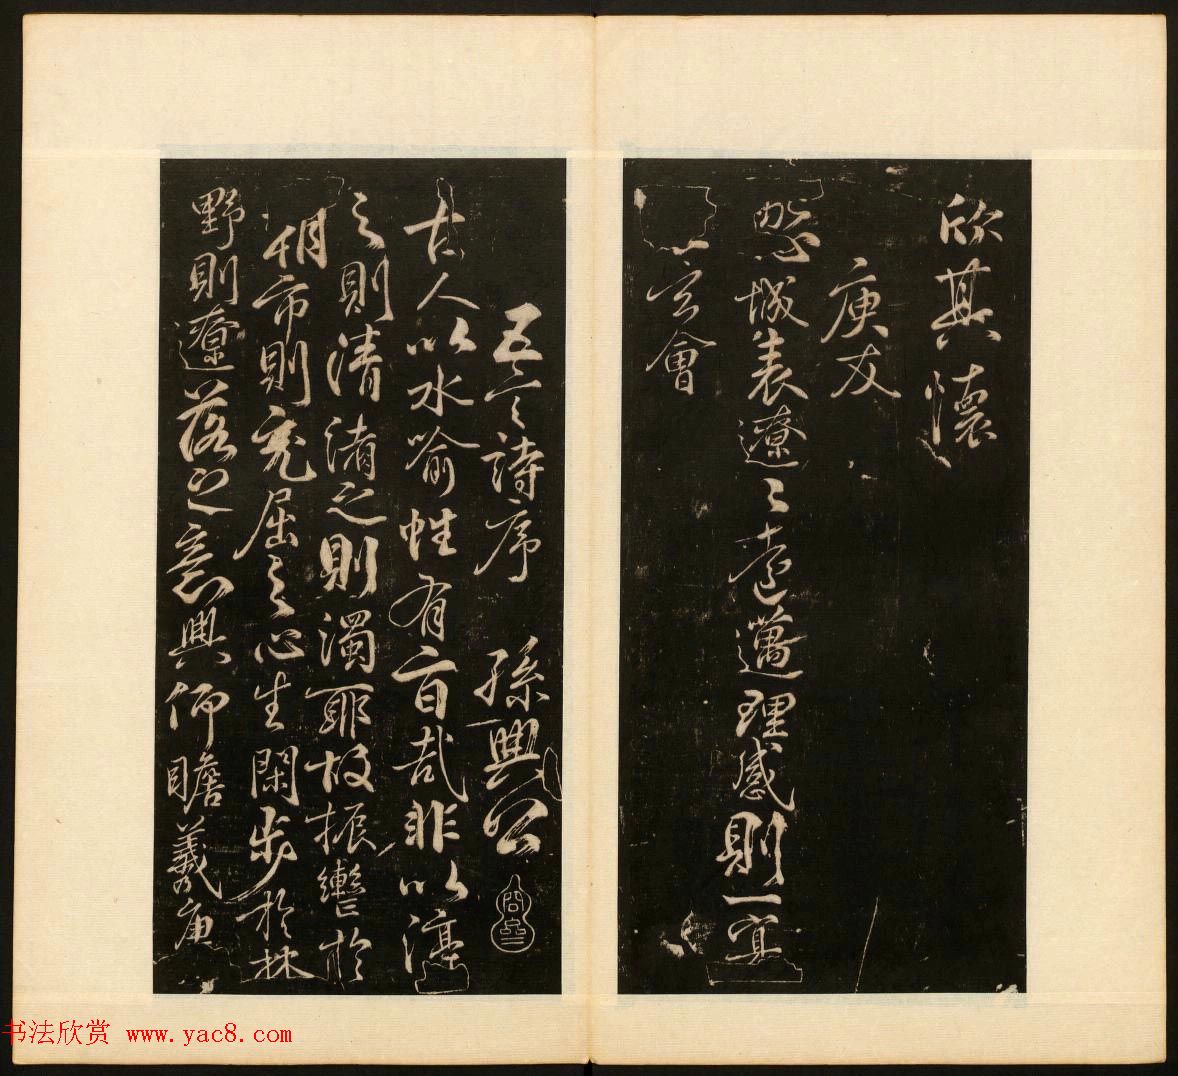 欣其懷
庾友
城表遼〻遠邁理感則一冥
玄會
五言詩序 孫興公
古人以水喻性有旨哉非以渟
之則清淆之則濁耶故振轡於
朝市則充屈之心生閑步於林
野則遼落之意興仰瞻羲唐
书法欣赏 www.yac8.com